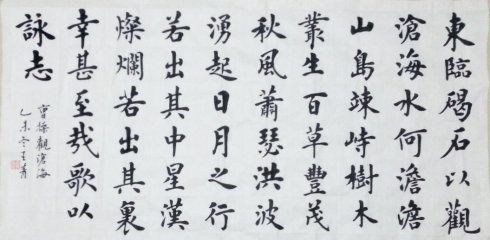 東臨碣石以觀
滄海水何澹澹
山島竦峙樹木
叢生百草豐茂
秋風蕭瑟洪波
湧起日月之行
若出其中星漢
燦爛若出其裏
幸甚至哉歌以
詠志
曹操觀滄海
乙未冬王